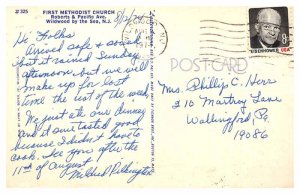 #325
FIRST METHODIST CHURCH
Roberts & Pacific Ave.
Wildwood by the Sea, N.J.
Hi Folks
Arrived safe & sound
but it rained Sunday
afternoon but we will
make up for lost
time the rest of the week.
We just ate our dinner
and it sure tasted good
because I didn't have to
cook. See you after the
11th of August
Mildred
POSTCARD
EISENHOWER USA
8c
Mrs. Phillip C. Herr
210 Martroy Lane
Wallingford Pa.
19086